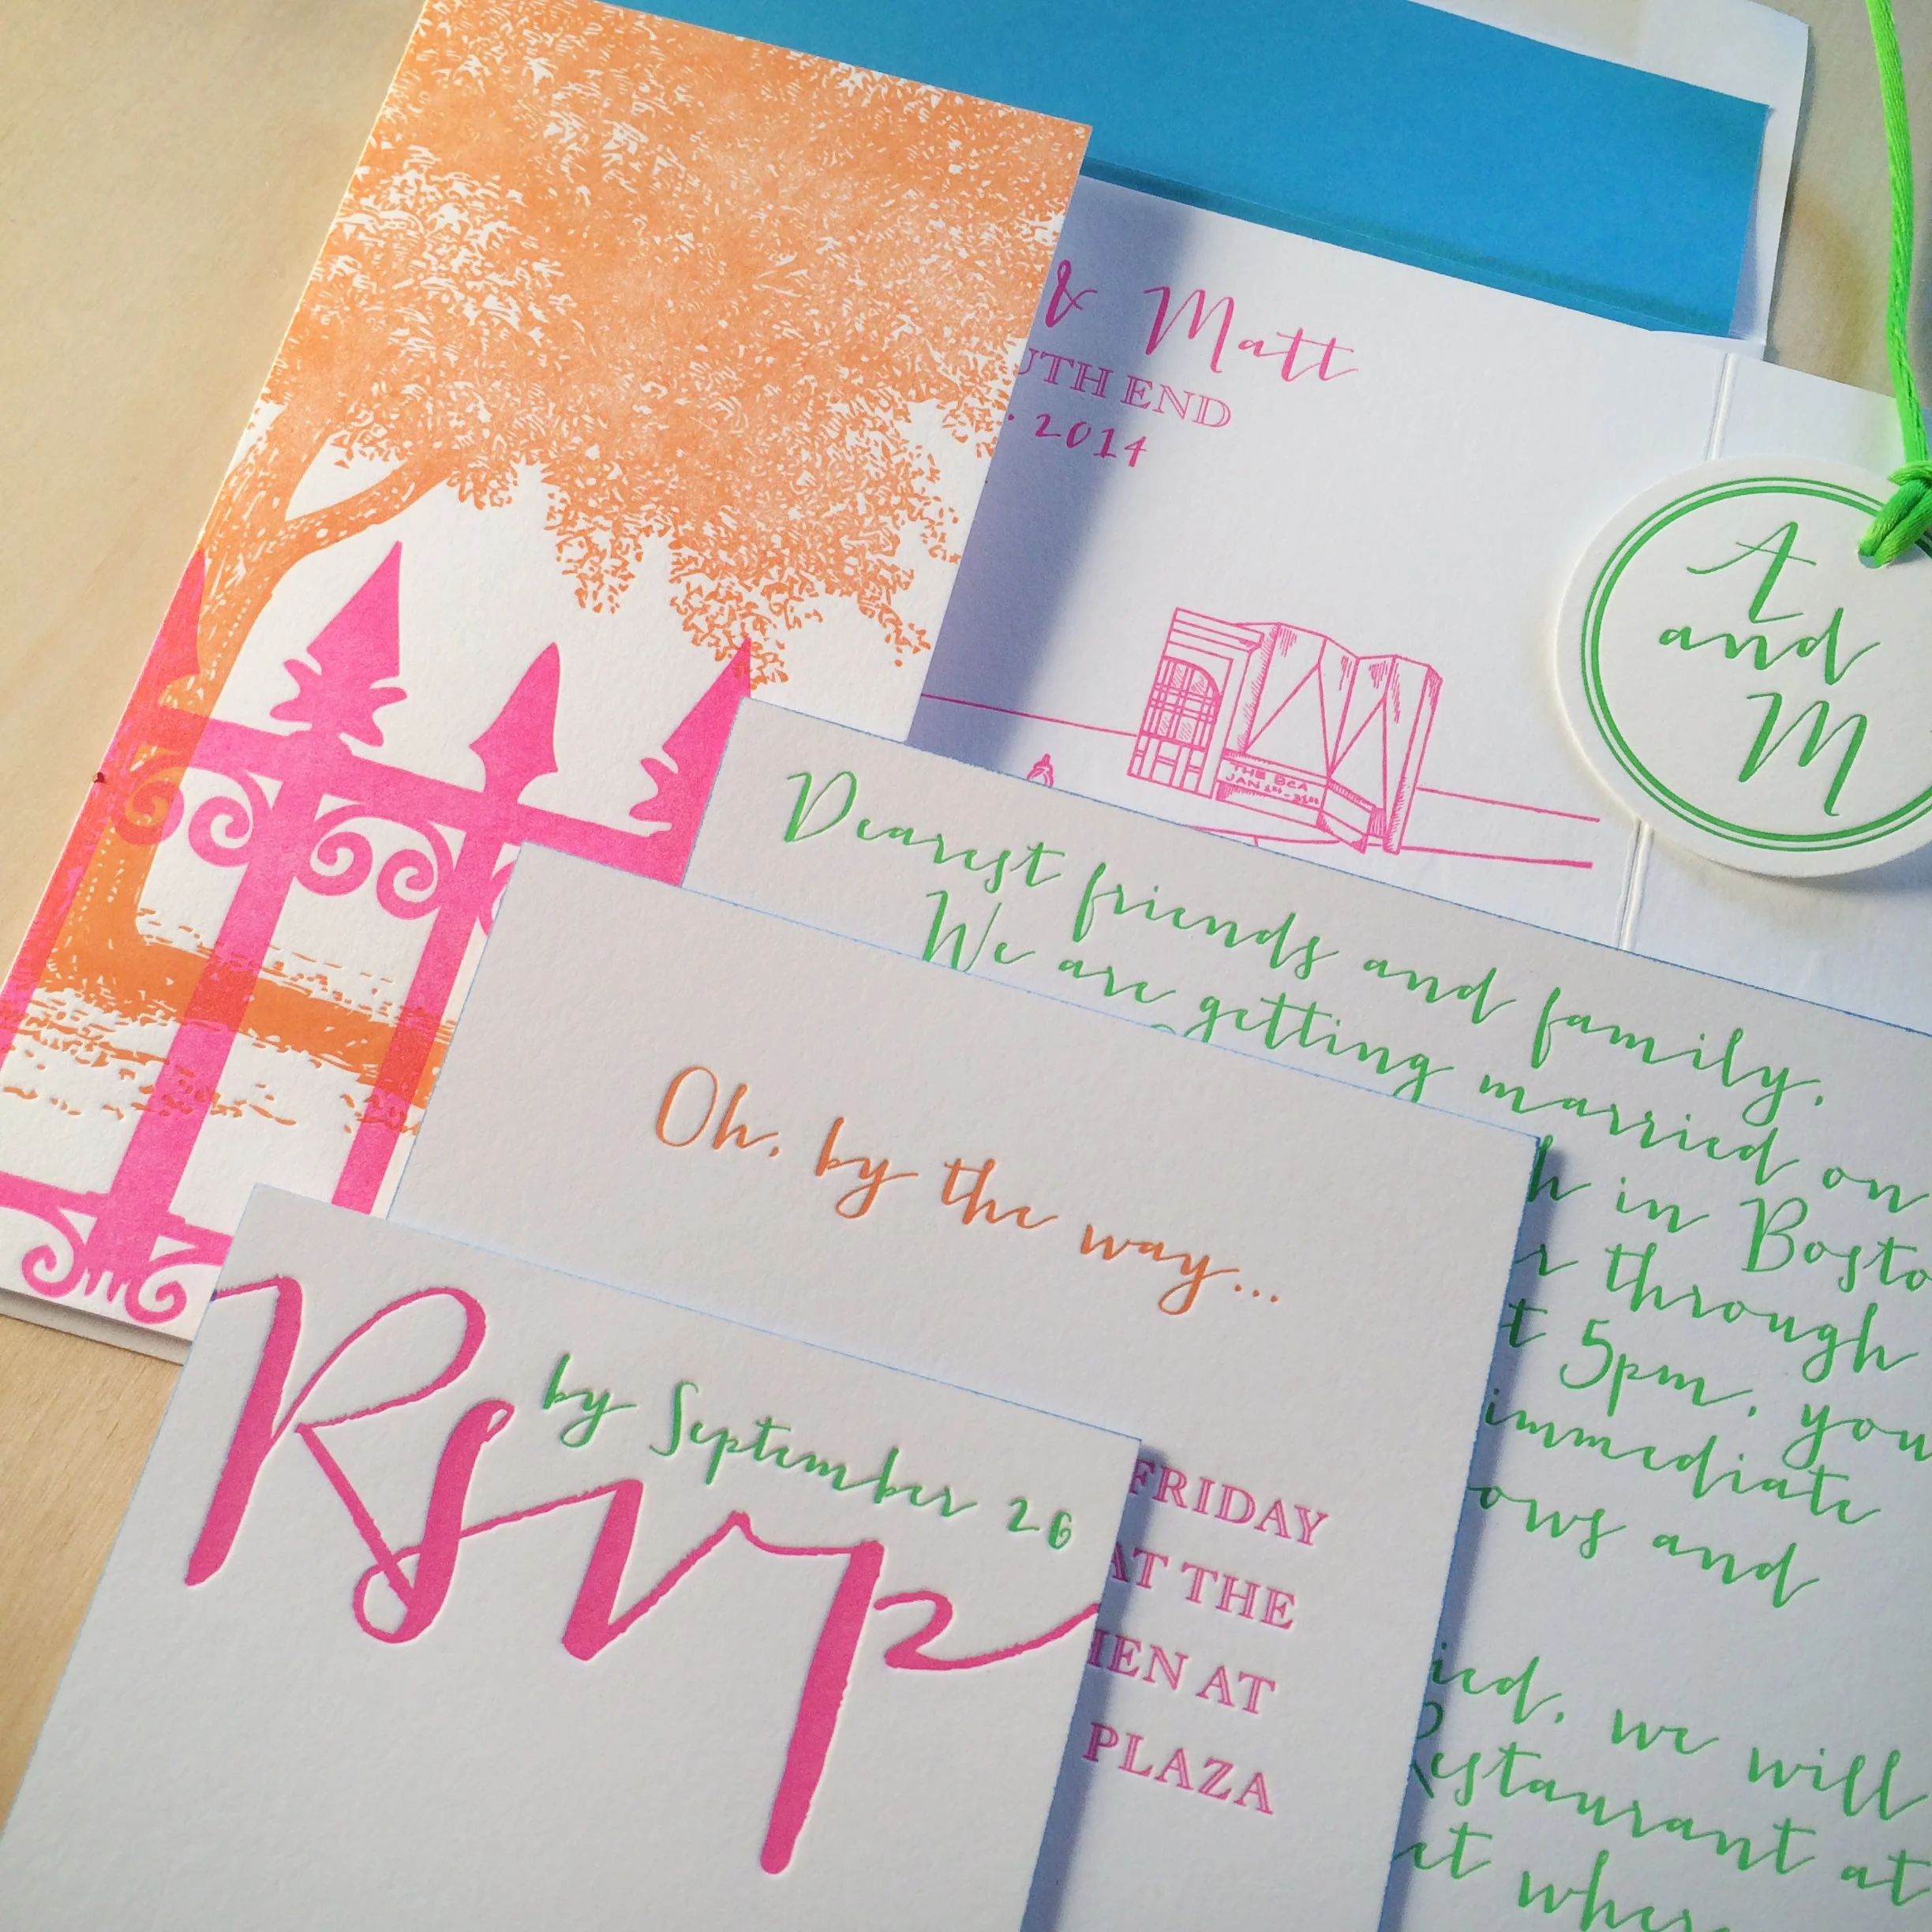 & Matt
UTH END
· 2014
THE BCA
JAN 1st-31st
A
and
M
Dearest friends and family,
We are getting married on
in Bosto
through
5pm, you
immediate
ows and
ied, we will
Restaurant at
et where
Oh, by the way...
FRIDAY
AT THE
HEN AT
PLAZA
Rsvp
by September 26